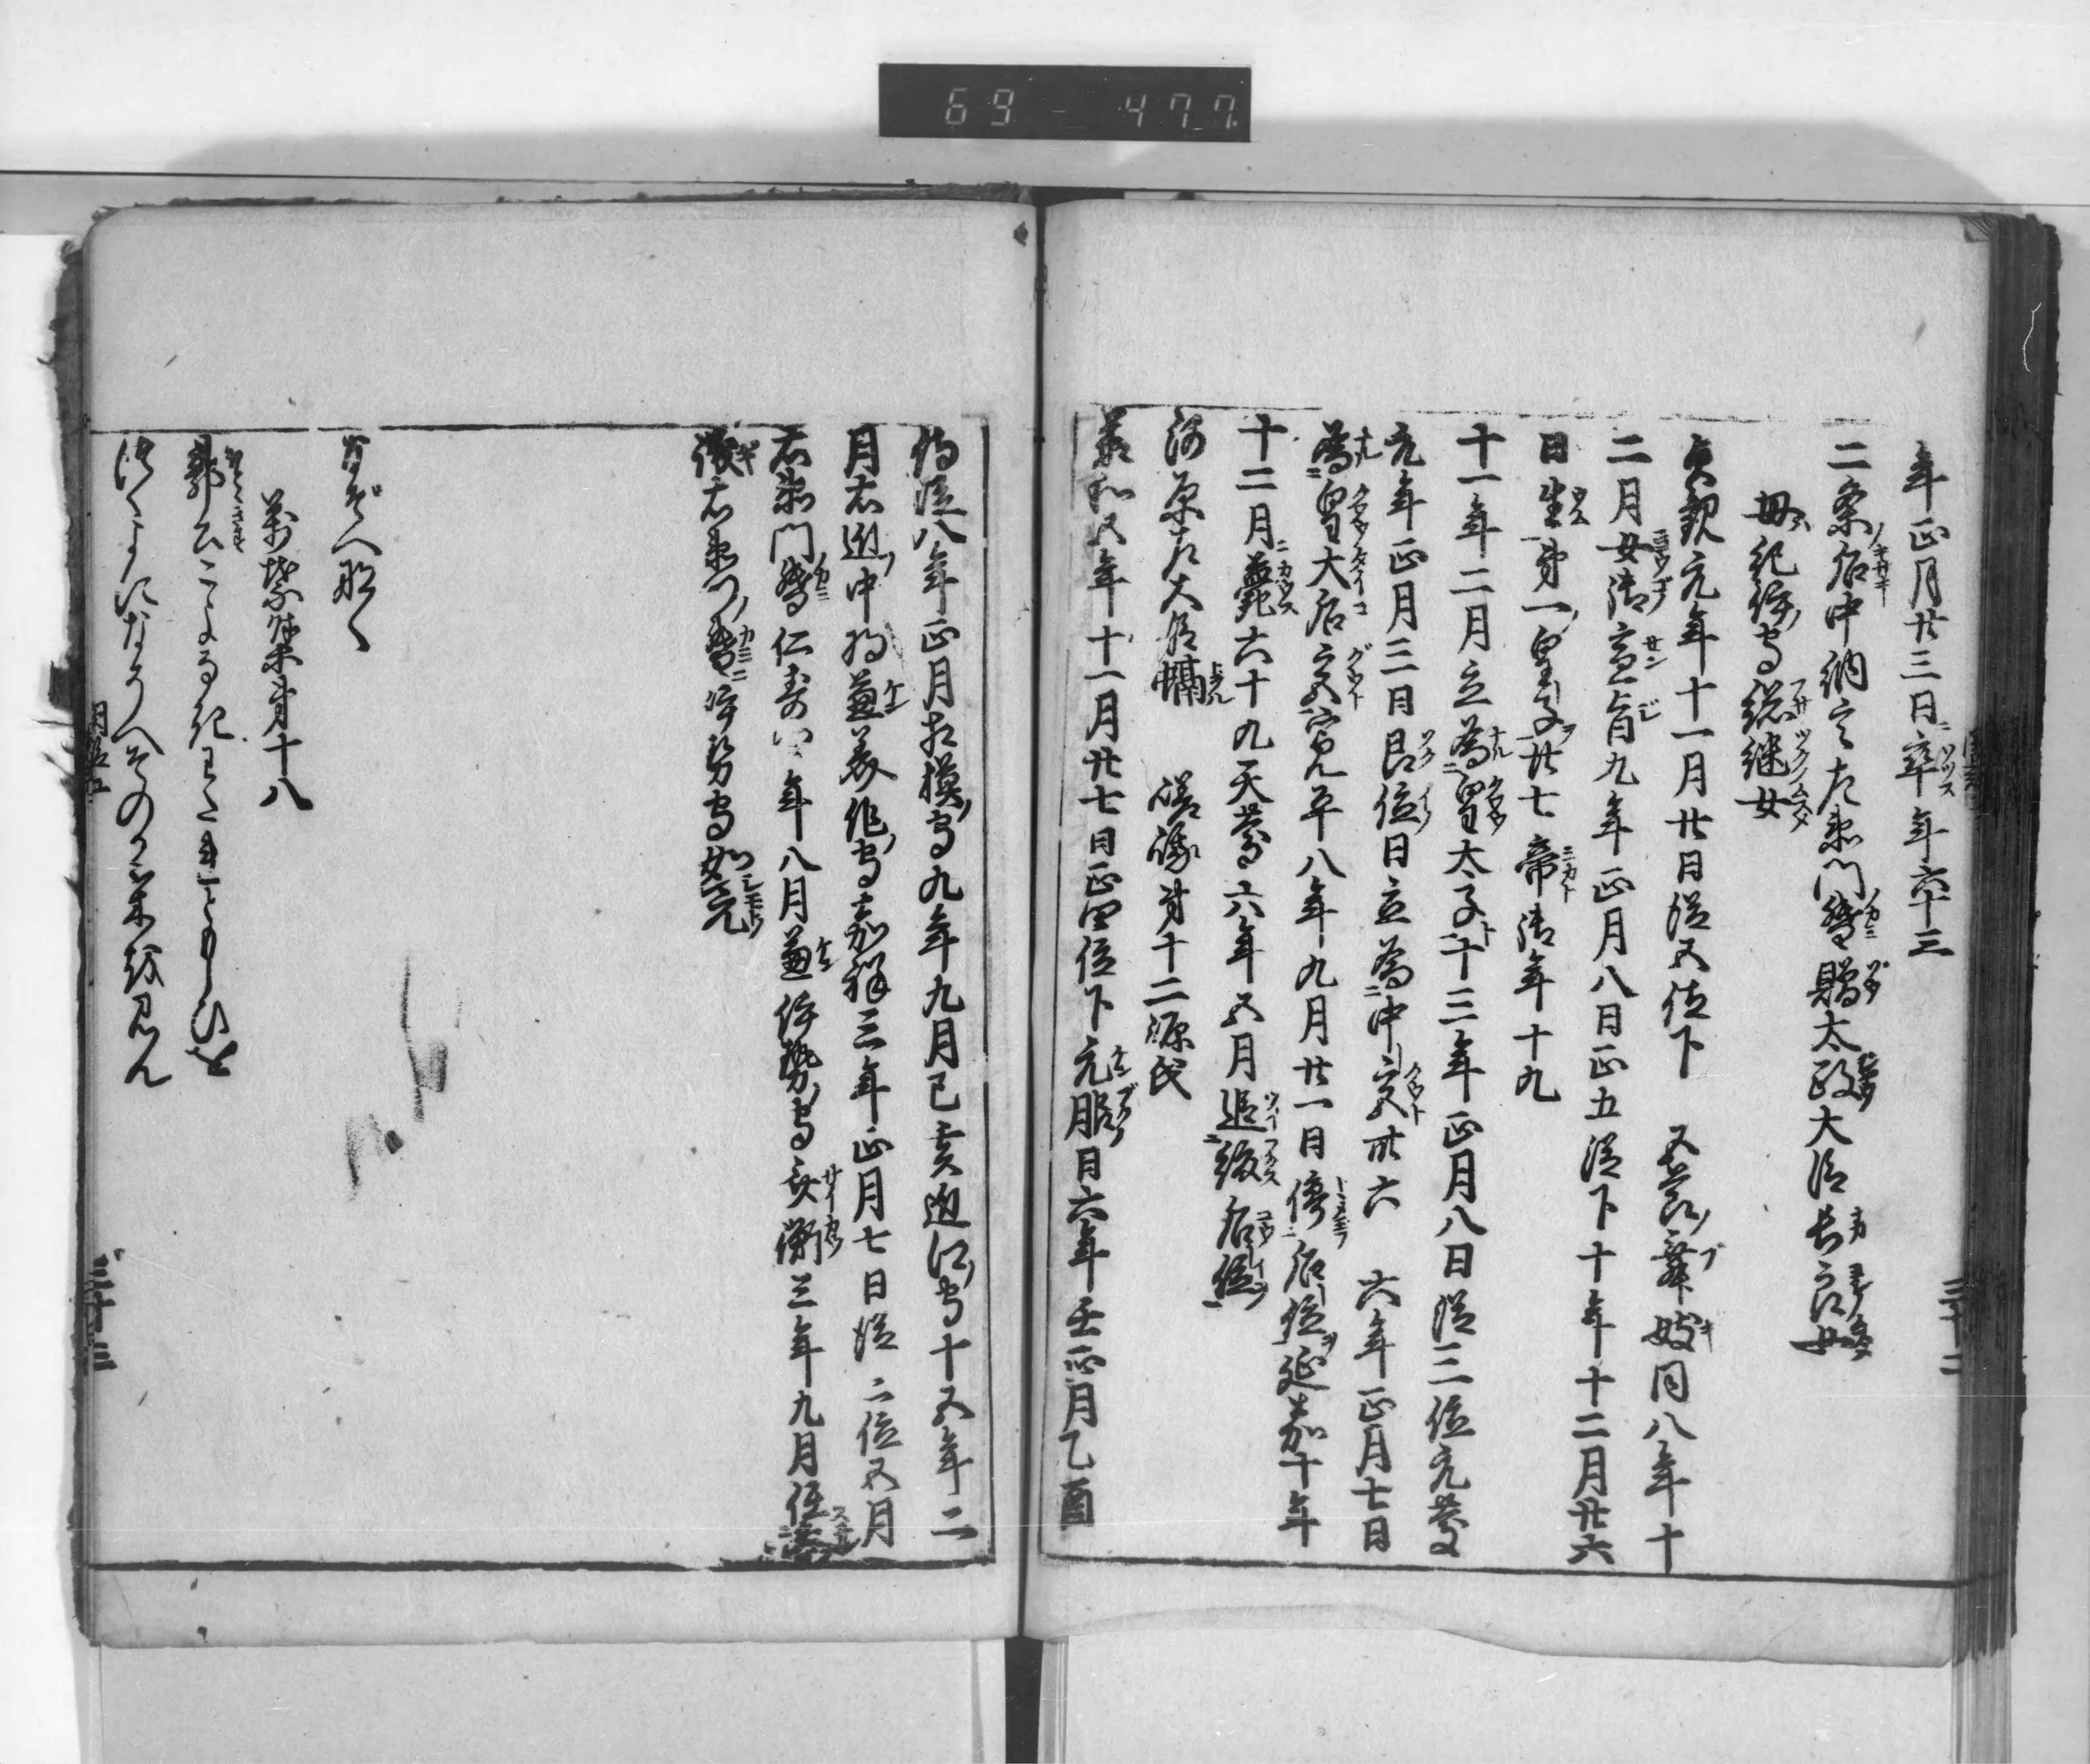 69 - 477
年正月廿三日卒年六十三
二条后中納言左衛門督贈太政大臣長良女
母紀伊守総継女
貞観元年十一月廿日従五位下 五節舞妓同八年十
二月女御宣旨九年正月八日正五位下十年十二月廿六
日生第一皇子廿七帝御年十九
十一年二月立為皇太子十三年正月八日従三位元慶
元年正月三日即位日立為中宮卅六 六年正月七日
為皇太后宮寛平八年九月廿一日停后位延喜十年
十二月薨六十九天慶六年五月追復后位
河原左大臣融 嵯峨第十二源氏
承和五年十一月廿七日正四位下元服日六年壬正月乙酉
三十二
侍従八年正月相模守九年九月己亥近江守十五年二
月右近中将兼美作守嘉祥三年正月七日従三位五月
右衛門督仁寿四年八月兼伊勢守斉衡三年九月任参
議右衛門督伊勢守如元
なぞへなく
万葉集第十八
つくよになそへその
三十三